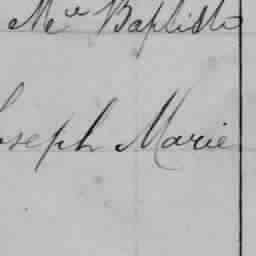 Mce Baptiste
Joseph Marie